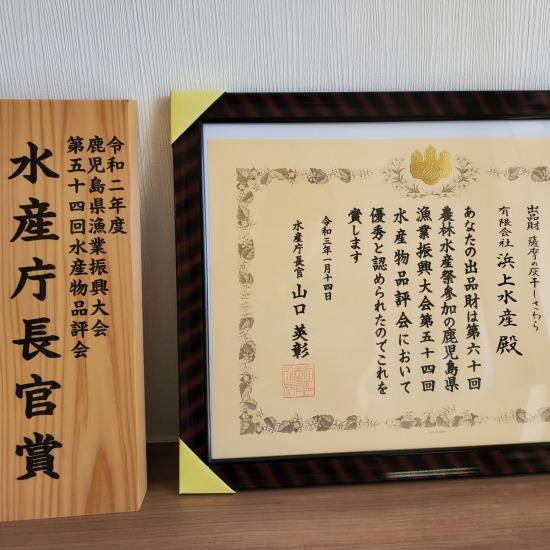 令和二年度
鹿児島県漁業振興大会
第五十四回水産物品評会
水産庁長官賞
出品財 薩摩の灰干しさわら
有限会社 浜上水産 殿
あなたの出品財は第六十回
農林水産祭参加の鹿児島県
漁業振興大会第五十四回
水産物品評会において
優秀と認められたのでこれを
賞します
令和三年一月十四日
水産庁長官 山口 英彰